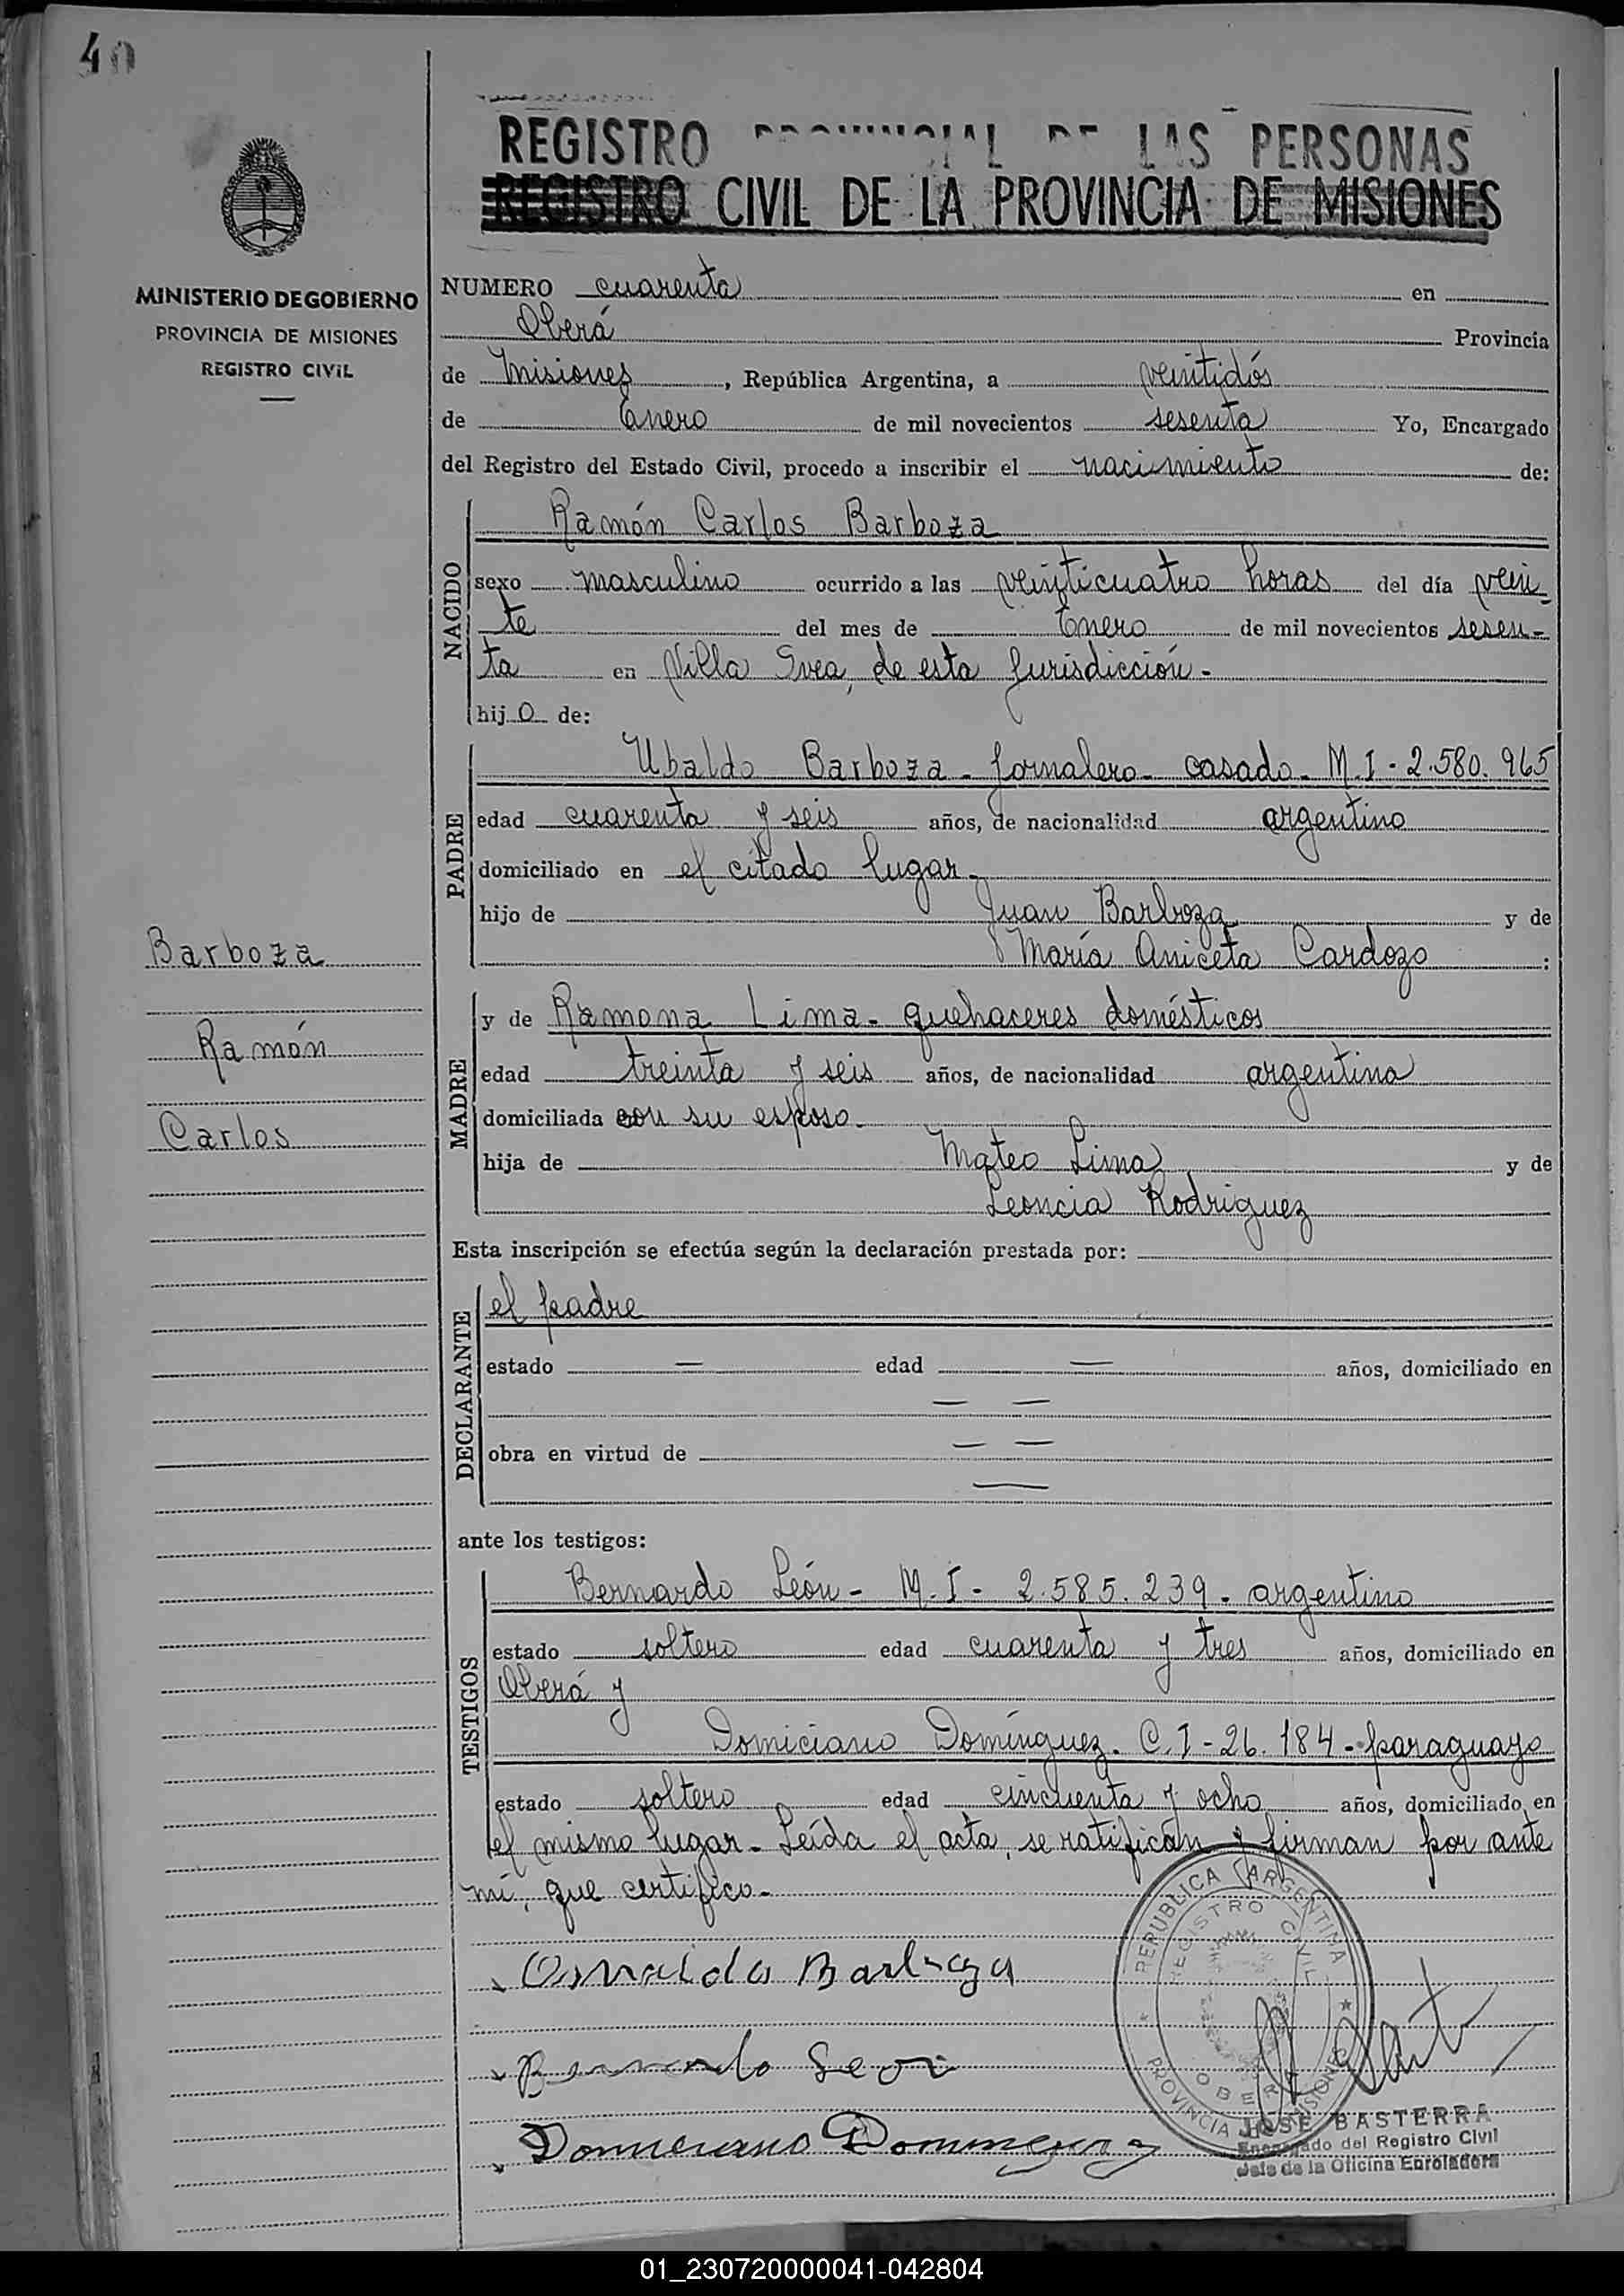 40
REGISTRO PROVINCIAL DE LAS PERSONAS
REGISTRO CIVIL DE LA PROVINCIA DE MISIONES
MINISTERIO DE GOBIERNO
PROVINCIA DE MISIONES
REGISTRO CIVIL
NUMERO cuarenta en
Oberá Provincia
de Misiones, República Argentina, a veintidós
de Enero de mil novecientos sesenta Yo, Encargado
del Registro del Estado Civil, procedo a inscribir el nacimiento de:
NACIDO
Ramón Carlos Barboza
sexo masculino ocurrido a las veinticuatro horas del día vein-
te del mes de Enero de mil novecientos sesen-
ta en Villa Svea, de esta Jurisdicción.-
hijo de:
PADRE
Ubaldo Barboza - Jornalero - casado - M.I - 2.580.965
edad cuarenta y seis años, de nacionalidad argentino
domiciliado en el citado lugar.-
hijo de Juan Barboza y de
María Aniceta Cardozo :
Barboza
Ramón
Carlos
MADRE
y de Ramona Lima - quehaceres domésticos
edad treinta y seis años, de nacionalidad argentina
domiciliada con su esposo.-
hija de Mateo Lima y de
Leoncia Rodriguez
Esta inscripción se efectúa según la declaración prestada por:
DECLARANTE
el padre
estado — edad — años, domiciliado en
— —
obra en virtud de — —
—
ante los testigos:
TESTIGOS
Bernardo León - M.I - 2.585.239 - argentino
estado soltero edad cuarenta y tres años, domiciliado en
Oberá y
Domiciano Domínguez - C.I - 26.184 - paraguayo
estado soltero edad cincuenta y ocho años, domiciliado en
el mismo lugar.- Leída el acta, se ratifican y firman por ante
mí, que certifico.-
Barboza
Bernardo Leon
Domiciano Dominguez
REPUBLICA ARGENTINA
REGISTRO CIVIL
OBERA
PROVINCIA DE MISIONES
JOSE BASTERRA
Encargado del Registro Civil
Jefe de la Oficina Enroladora
01_230720000041-042804